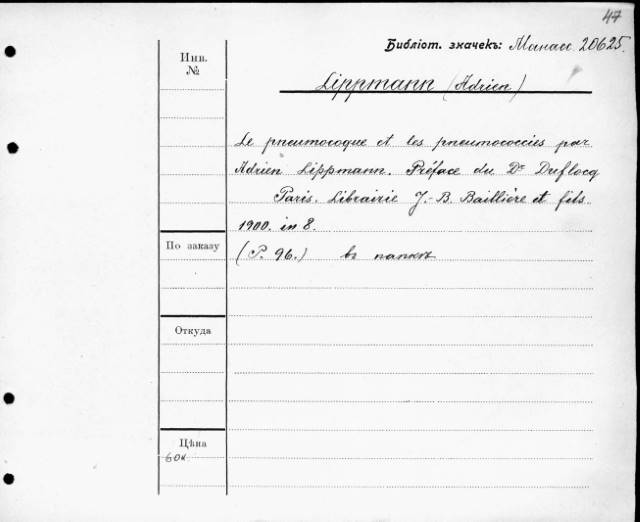 47
Библіот. значекъ: Манасс. 20625.
Инв.
№
Lippmann (Adrien)
Le pneumocoque et les pneumococcies par
Adrien Lippmann. Préface du Dr Duflocq
Paris. Librairie J.-B. Baillière et fils
1900. in 8.
По заказу
(P. 96.) въ папкѣ
Откуда
Цѣна
60к